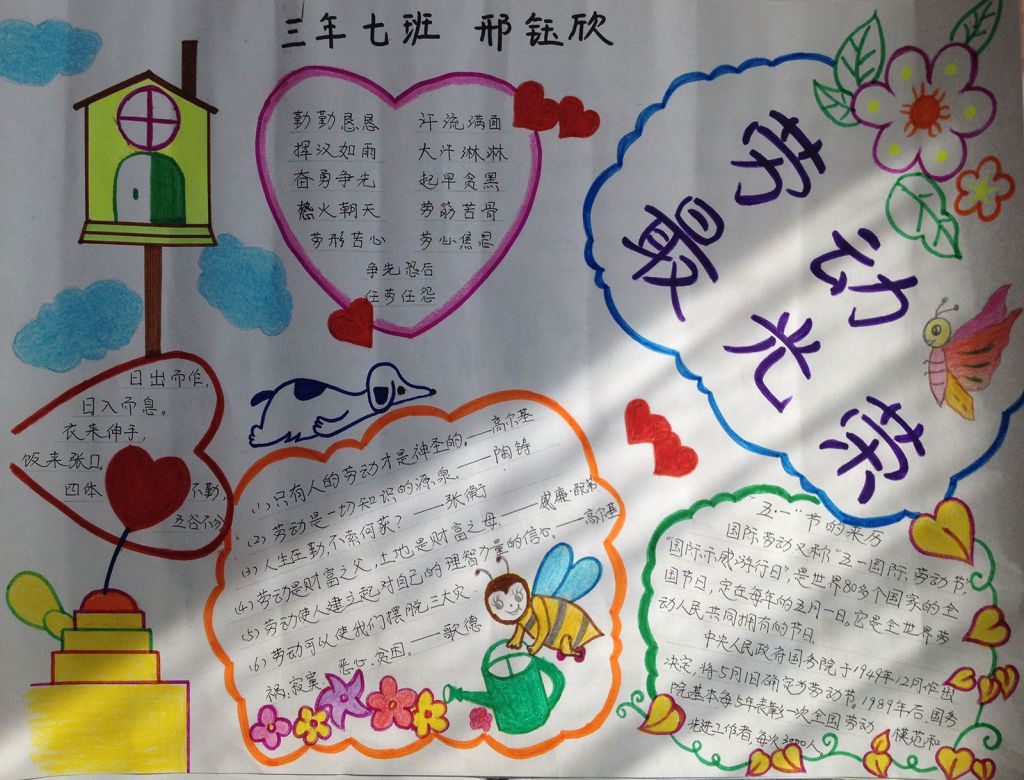 三年七班 邢钰欣
勤勤恳恳 汗流满面
挥汉如雨 大汗淋淋
奋勇争先 起早贪黑
热火朝天 劳筋苦骨
劳形苦心 劳心焦思
争先恐后
任劳任怨
劳动最光荣
日出而作,
日入而息。
衣来伸手,
饭来张口。
四体不勤,
五谷不分
(1)只有人的劳动才是神圣的。——高尔基
(2)劳动是一切知识的源泉。——陶铸
(3)人生在勤,不索何获?——张衡
(4)劳动是财富之父,土地是财富之母。——威廉·配第
(5)劳动使人建立起对自己的理智力量的信心。——高尔基
(6)劳动可以使我们摆脱三大灾
祸:寂寞、恶心、贫困。——歌德
"五.一"节的来历
国际劳动又称"五一国际劳动节"
"国际示威游行日"是世界80多个国家的全
国节日,定在每年的五月一日。它是全世界劳
动人民共同拥有的节日.
中央人民政府国务院于1949年12月作出
决定,将5月1日确定为劳动节。1989年后,国务
院基本每5年表彰一次全国劳动模范和
先进工作者,每次3000人